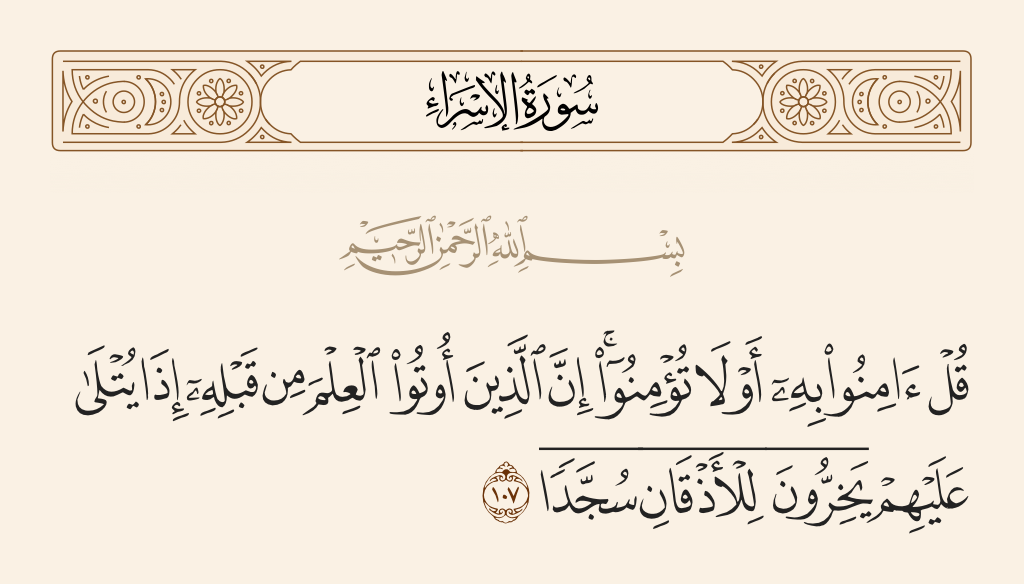 سُورَةُ الإِسْرَاءِ
بِسْمِ ٱللَّهِ ٱلرَّحْمَٰنِ ٱلرَّحِيمِ
قُلْ ءَامِنُوا۟ بِهِۦٓ أَوْ لَا تُؤْمِنُوٓا۟ ۚ إِنَّ ٱلَّذِينَ أُوتُوا۟ ٱلْعِلْمَ مِن قَبْلِهِۦٓ إِذَا يُتْلَىٰ
عَلَيْهِمْ يَخِرُّونَ لِلْأَذْقَانِ سُجَّدًا ١٠٧